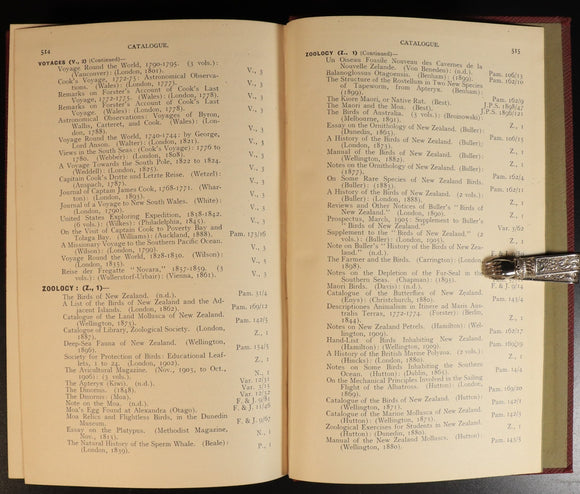 514
CATALOGUE.
VOYAGES (V., 1) (Continued)—
Voyage Round the World, 1790-1795. (3 vols.):
(Vancouver): (London, 1801). V., 3
Cook's Voyage, 1772-75: Astronomical Observations. (Wales): (London, 1777). V., 3
Remarks on Forster's Account of Cook's Last
Voyage, 1772-1775: (Wales): (London, 1778). V., 3
Remarks on Forster's Account of Cook's Last
Voyage, 1772-75. (Wales): (London, 1778). V., 3
Astronomical Observations: Voyages of Byron,
Wallis, Carteret, and Cook. (Wales): (London, 1788). V., 3
Voyage Round the World, 1740-1744; by George,
Lord Anson. (Walter): (London, 1821). V., 3
Views in the South Seas: Cook's Voyage: 1776 to
1780. (Webber): (London, 1808). V., 3
A Voyage Towards the South Pole, 1822 to 1824.
(Weddell): (London, 1825). V., 3
Captain Cook's Dritte und Letzte Reise. (Wetzel):
(Anspach, 1787). V., 3
Journal of Captain James Cook, 1768-1771. (Wharton): (London, 1893). V., 3
Journal of a Voyage to New South Wales. (White):
(London, 1790). V., 3
United States Exploring Expedition, 1838-1842.
(6 vols.): (Wilkes): (Philadelphia, 1845). V., 3
On the Visit of Captain Cook to Poverty Bay and
Tolaga Bay. (Williams): (Auckland, 1888). Pam. 173/16
A Missionary Voyage to the Southern Pacific Ocean.
(Wilson): (London, 1799). V., 3
Voyage Round the World, 1828-1830. (Wilson):
(London, 1835). V., 3
Reise der Fregatte "Novara," 1857-1859. (3
vols.): (Wullerstorf-Urbair): (Vienna, 1861). V., 3
ZOOLOGY: (Z., 1)—
The Birds of New Zealand. (n.d.). Pam. 31/4
A List of the Birds of New Zealand and the Adjacent Islands. (London, 1862). Pam. 169/12
Catalogue of the Land Mollusca of New Zealand.
(Wellington, 1873). Pam. 142/5
Catalogue of Library, Zoological Society. (London,
1887). Z., 1
Deep-Sea Fauna of New Zealand. (Wellington,
1896). Pam. 154/5
Society for Protection of Birds: Educational Leaflets, 1 to 24. (London, 1902). Z., 1
The Avicultural Magazine. (Nov., 1905, to Oct.,
1906): (3 vols.). N., 1
The Apteryx (Kiwi). (n.d.). Var. 12/31
The Dinornis. (1848). Var. 3/15
The Dinornis (Moa). Var. 12/32
Note on the Moa. (n.d.). F. & J. 9/84
Moa's Egg Found at Alexandra (Otago). F. & J. 11/46
Moa Relics and Flightless Birds, in the Dunedin
Museum. F. & J. 9/67
Essay on the Platypus. (Methodist Magazine,
Nov., 1815). Z., 1
The Natural History of the Sperm Whale. (Beale):
(London, 1839). P., 1
CATALOGUE.
515
ZOOLOGY (Z., 1) (Continued)—
Un Oiseau Fossile Nouveau des Cavernes de la
Nouvelle Zelande. (Von Beneden): (n.d.).
Balanoglossus Otagoensis. (Benham): (1899). Pam. 106/13
The Structure of the Rostellum in Two New Species
of Tapeworm, from Apteryx. (Benham):
(1899).
The Kiore Maori, or Native Rat. (Best). J.P.S. 1898/47
The Maori and the Moa. (Best). J.P.S. 1896/121
The Birds of Australia. (3 vols.): (Broinowski):
(Melbourne, 1891). Z., 1
Essay on the Ornithology of New Zealand. (Buller):
(Dunedin, 1865).
A History of the Birds of New Zealand. (Buller):
(London, 1873). Z., 1
Manual of the Birds of New Zealand. (Buller):
(Wellington, 1882).
Notes on the Ornithology of New Zealand. (Buller):
(n.d.).
On Some Rare Species of New Zealand Birds.
(Buller):
A History of the Birds of New Zealand. (2 vols.):
(Buller): (London, 1888). Z., 1
Reviews and Other Notices of Buller's "Birds of
New Zealand." (London, 1890). Z., 1
Prospectus, March, 1904: Supplement to Buller's
"Birds of New Zealand." Var. 3/62
Supplement to the "Birds of New Zealand." (2
vols.): (Buller): (London, 1905). Z., 1
Note on Buller's "History of the Birds of New Zealand." (n.d.).
The Farmer and the Birds. (Carrington): (London,
1898).
Notes on the Depletion of the Fur-Seal in the
Southern Seas. (Chapman): (1893).
Maori Birds. (Davis): (n.d.). F. & J. 9/14
Catalogue of the Butterflies of New Zealand.
(Enys): (Christchurch, 1880). Pam. 143/4
Descriptiones Animalium in Itinere ad Maris Australis Terras, 1772-1774. (Forster): (Berlin,
1844). Z., 1
Notes on New Zealand Petrels. (Hamilton): (Wellington, 1909). Pam. 162/17
Hand-List of Birds Inhabiting New Zealand.
(Hamilton): (Wellington, 1909). Z., 1
A History of the British Marine Polyzoa. (2 vols.):
(Hincks): (London, 1880). Z., 1
Notes on Some Birds Inhabiting the Southern
Ocean. (Hutton): (Dublin, 1865). Pam. 14/4
On the Mechanical Principles Involved in the Sailing
Flight of the Albatross. (Hutton): (London,
1869). Pam. 169/20
Catalogue of the Birds of New Zealand. (Hutton):
(Wellington, 1871). Pam. 142/1
Catalogue of the Marine Mollusca of New Zealand.
(Hutton): (Wellington, 1873). Pam. 142/6
Zoological Exercises for Students in New Zealand.
(Hutton): (Dunedin, 1880). Z., 1
Manual of the New Zealand Mollusca. (Hutton):
(Wellington, 1880). Pam. 143/5